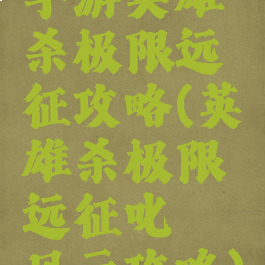 手游英雄
杀极限远
征攻略(英
雄杀极限
远征叱